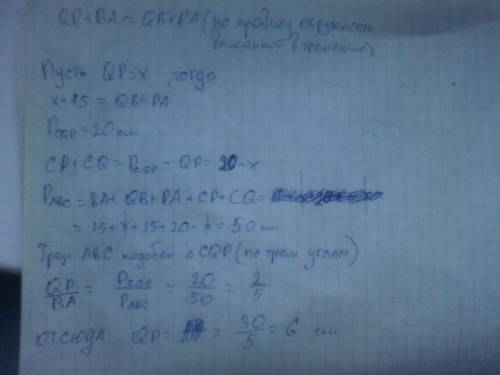 QP+BA = QB+PA (по правилу окружности
вписанной в трапецию)
Пусть QP=x, тогда
x+15 = QB+PA
P_CQP = 20 см
CP+CQ = P_CQP - QP = 20-x
P_ABC = BA + QB + PA + CP + CQ =
= 15+x+15+20-x = 50 см
Треуг. ABC подобен △CQP (по трем углам)
QP/BA = P_CQP/P_ABC = 20/50 = 2/5
отсюда QP = = 30/5 = 6 см